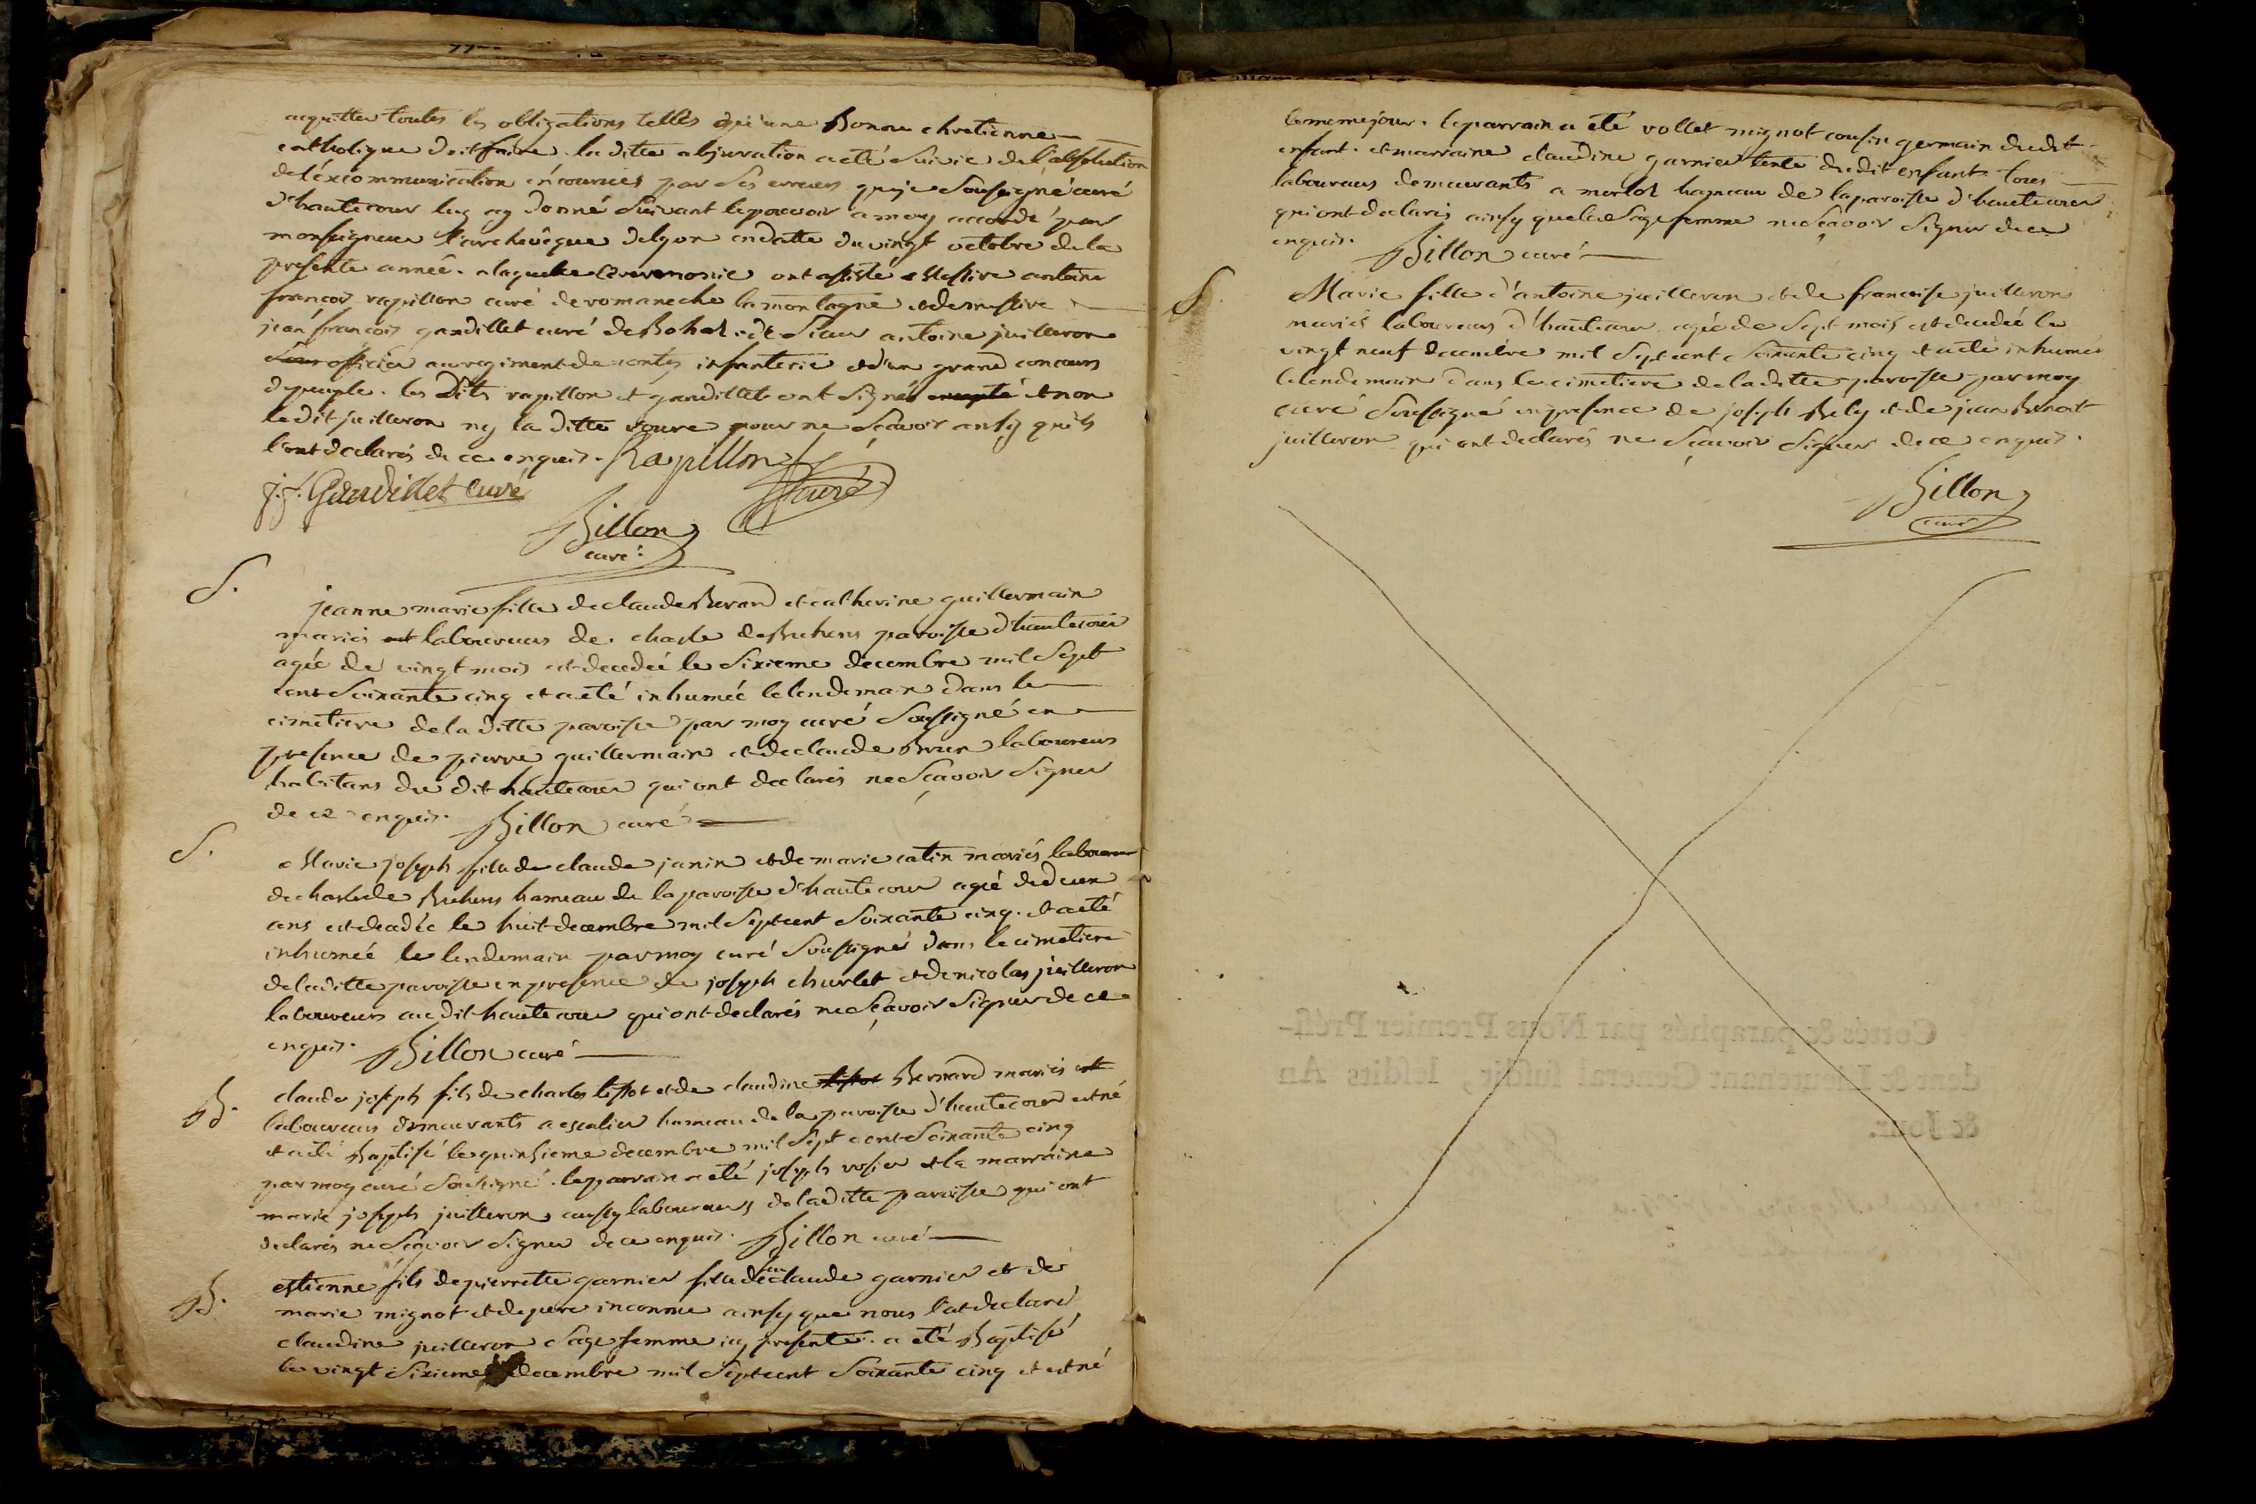 acquitter toutes les obligations telles qu'une Bonne chretienne
catholique doit faire. la ditte abjuration a eté Suivie de l'absolution
de l'éxcommunication encourües par Ses erreurs que je Soussigné curé
d'hautecour luy ay donné Suivant le pouvoir a moy accordé par
monseigneur l'archevêque de lyon en datte du vingt octobre de la
presente année. a laquelle Ceremonie ont assisté Messire antoine
françois rapillon curé de romaneche la montagne et de messire
jean françois gandillet curé de Bohas et de Sieur antoine juilleron
officier au regiment de infanterie et d'un grand concours
de peuple. les Dits rapillon et gandillet ont Signés et non
le dit juilleron ny la ditte pour ne Sçavoir ainsy qu'ils
l'ont declarés de ce enquis. Rapillon
J. f. Gandillet Curé curé
Billon
curé
S.
jeanne marie fille de claude Beraud et catherine guillermain
mariés laboureurs de. chasle de Buhens paroisse d'hautecour
agée de vingt mois est decedeé le Sixieme decembre mil Sept
cent Soixante cinq et a eté inhumeé le lendemain dans le
cimetiere de la ditte paroisse par moy curé Soussigné en
presence de pierre guillermain et de claude Brun laboureurs
habitans du dit hautecour qui ont declarés ne Sçavoir Signer
de ce enquis. Billon curé
S.
Marie joseph fille de claude janin et de marie catin mariés laboureurs
de chasle de Buhens hameau de la paroisse d'hautecour agée de deux
ans est decedée le huit decembre mil Sept cent Soixante cinq. et a eté
inhumeé le lendemain par moy curé Soussigné dans le cimetiere
de la ditte paroisse en presence de joseph churlet et de nicolas juilleron
laboureurs au dit hautecour qui ont declarés ne Sçavoir Signer de ce
enquis. Billon curé
B.
claude joseph fils de charles tissot et de claudine Bernard mariés et
laboureurs demeurants a escalier hameau de la paroisse d'hautecour est né
et a eté Baptisé le quinzieme decembre mil Sept cent Soixante cinq
par moy curé Soussigné. le parrain a eté joseph rosier et la marraine
marie joseph juilleron aussy laboureurs de la ditte paroisse qui ont
declarés ne Sçavoir Signer de ce enquis. Billon curé
B.
estienne fils de pierrette garnier fille de feu claude garnier et de
marie mignot et de pere inconnu ainsy que nous l'at declaré
claudine juilleron Sage femme icy presente. a eté Baptisé
le vingt Sixieme decembre mil Sept cent Soixante cinq et est né
le meme jour. le parrain a été vollet mignot cousin germain du dit
enfant. et marraine claudine garnier tente du dit enfant tous
laboureurs demeurants a merloz hameau de la paroisse d'hautecour
qui ont declarés ainsy que la Sage femme ne Sçavoir Signer de ce
enquis. Billon curé
S.
Marie fille d'antoine juilleron et de francoise juilleron
mariés laboureurs d'hautecour agée de Sept mois est decedée le
vingt neuf decembre mil Sept cent Soixante cinq et a eté inhumeé
le lendemain dans le cimetiere de la ditte paroisse par moy
curé Soussigné en presence de joseph Rely et de jean Benoit
juilleron qui ont declarés ne Sçavoir Signer de ce enquis.
Billon
curé
Cottés & paraphés par Nous Premier Présif-
dent & Lieutenant Général susdit, lesdits An
& Jour.